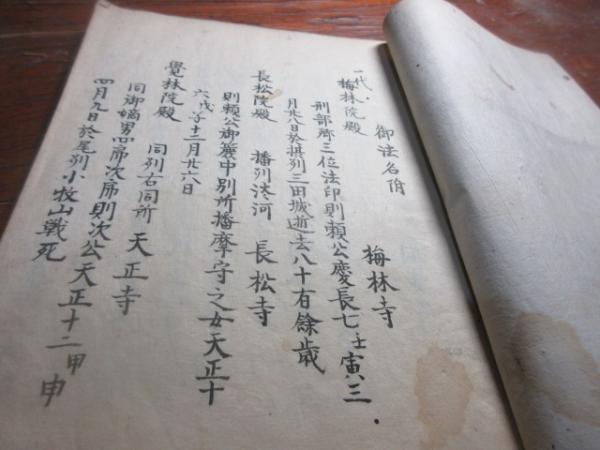 御法名附
一代
梅林院殿 梅林寺
刑部卿三位法印則頼公慶長七壬寅三
月廿八日於摂列三田城逝去八十有餘歳
長松院殿 播列淡河 長松寺
則頼公御簾中別所播摩守之女天正十
六戊子十二月廿六日
覺林院殿 同列右同所 天正寺
同御嫡男四帝次帝則次公天正十二甲申
四月九日於尾列小牧山戦死